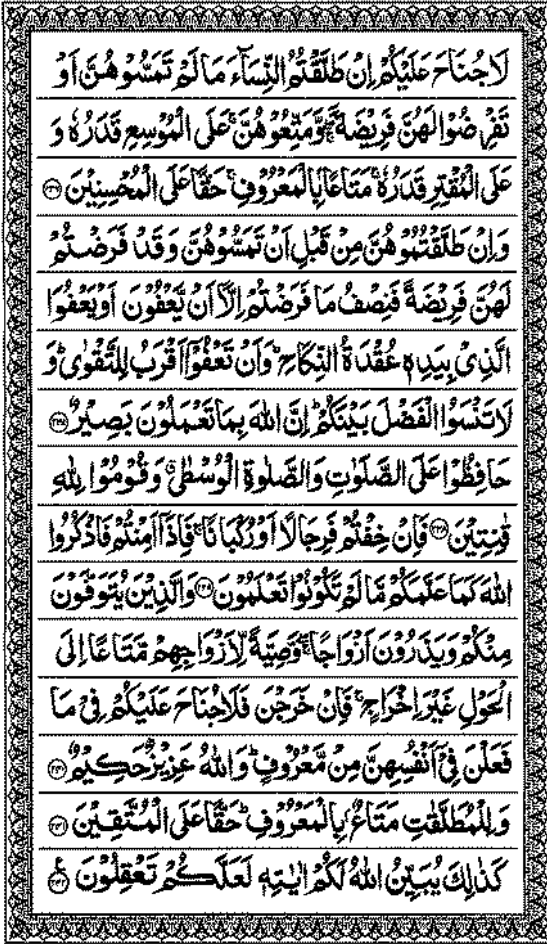 لَا جُنَاحَ عَلَيْكُمْ اِنْ طَلَّقْتُمُ النِّسَآءَ مَا لَمْ تَمَسُّوْهُنَّ اَوْ
تَفْرِضُوْا لَهُنَّ فَرِيْضَةً ۚۖ وَّمَتِّعُوْهُنَّ ۚ عَلَى الْمُوْسِعِ قَدَرُهٗ وَ
عَلَى الْمُقْتِرِ قَدَرُهٗ ۚ مَتَاعًۢا بِالْمَعْرُوْفِ ۚ حَقًّا عَلَى الْمُحْسِنِيْنَ ﴿۲۳۶﴾
وَاِنْ طَلَّقْتُمُوْهُنَّ مِنْ قَبْلِ اَنْ تَمَسُّوْهُنَّ وَقَدْ فَرَضْتُمْ
لَهُنَّ فَرِيْضَةً فَنِصْفُ مَا فَرَضْتُمْ اِلَّاۤ اَنْ يَّعْفُوْنَ اَوْ يَعْفُوَا
الَّذِىْ بِيَدِهٖ عُقْدَةُ النِّكَاحِ ؕ وَاَنْ تَعْفُوْۤا اَقْرَبُ لِلتَّقْوٰى ؕ وَ
لَا تَنْسَوُا الْفَضْلَ بَيْنَكُمْ ؕ اِنَّ اللهَ بِمَا تَعْمَلُوْنَ بَصِيْرٌ ﴿۲۳۷﴾
حَافِظُوْا عَلَى الصَّلَوٰتِ وَالصَّلٰوةِ الْوُسْطٰى ۗ وَقُوْمُوْا لِلّٰهِ
قٰنِتِيْنَ ﴿۲۳۸﴾ فَاِنْ خِفْتُمْ فَرِجَالًا اَوْ رُكْبَانًا ۚ فَاِذَاۤ اَمِنْتُمْ فَاذْكُرُوا
اللهَ كَمَا عَلَّمَكُمْ مَّا لَمْ تَكُوْنُوْا تَعْلَمُوْنَ ﴿۲۳۹﴾ وَالَّذِيْنَ يُتَوَفَّوْنَ
مِنْكُمْ وَيَذَرُوْنَ اَزْوَاجًا ۚۖ وَّصِيَّةً لِّاَزْوَاجِهِمْ مَّتَاعًا اِلَى
الْحَوْلِ غَيْرَ اِخْرَاجٍ ۚ فَاِنْ خَرَجْنَ فَلَا جُنَاحَ عَلَيْكُمْ فِىْ مَا
فَعَلْنَ فِىْۤ اَنْفُسِهِنَّ مِنْ مَّعْرُوْفٍ ؕ وَاللهُ عَزِيْزٌ حَكِيْمٌ ﴿۲۴۰﴾
وَلِلْمُطَلَّقٰتِ مَتَاعٌۢ بِالْمَعْرُوْفِ ؕ حَقًّا عَلَى الْمُتَّقِيْنَ ﴿۲۴۱﴾
كَذٰلِكَ يُبَيِّنُ اللهُ لَكُمْ اٰيٰتِهٖ لَعَلَّكُمْ تَعْقِلُوْنَ ﴿۲۴۲﴾ ع